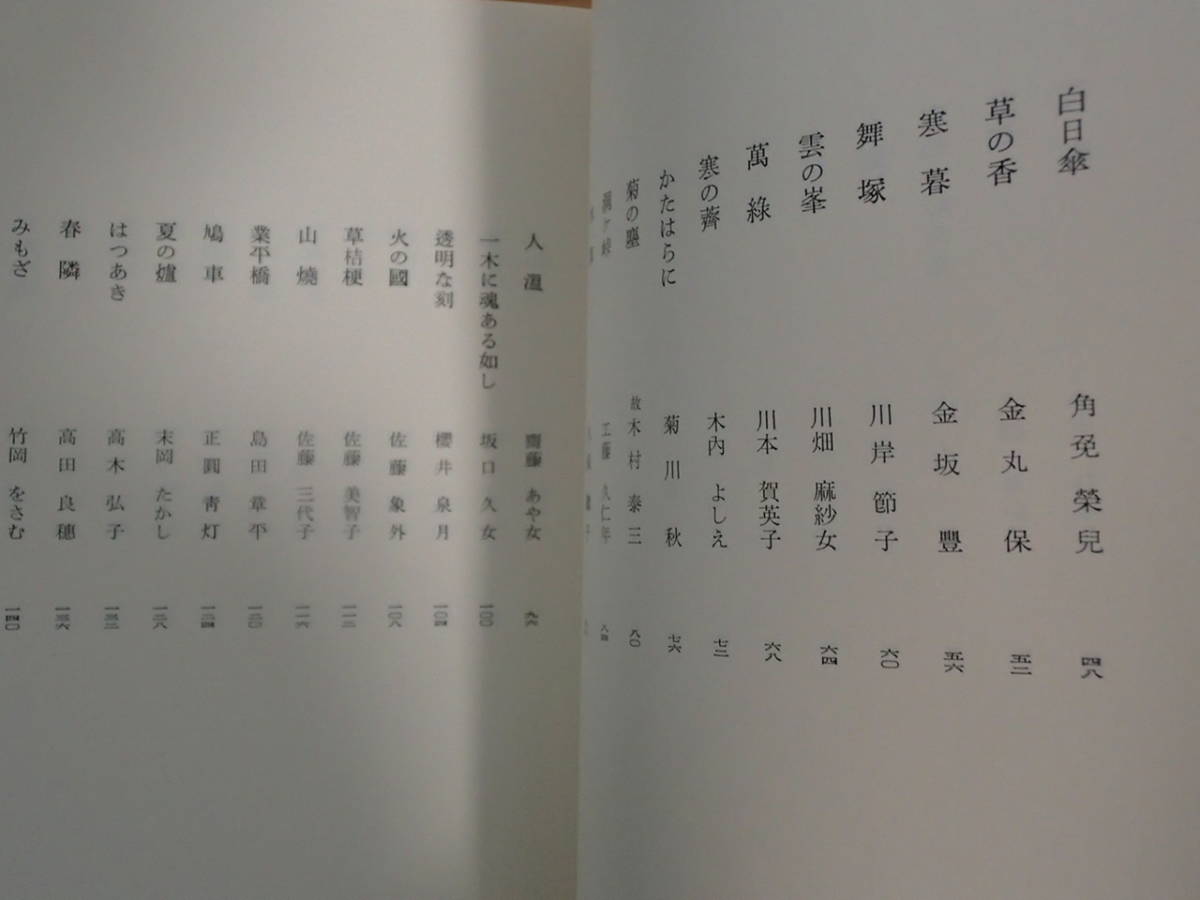 白日傘 角免榮兒 四八
草の香 金丸保 五二
寒暮 金坂豐 五六
舞塚 川岸節子 六〇
雲の峯 川畑麻紗女 六四
萬綠 川本賀英子 六八
寒の薺 木內よしえ 七二
かたはらに 菊川秋 七六
菊の塵 故木村泰三 八〇
ヶ峠 工藤久仁年 八四
人溫 齋藤あや女 九六
一木に魂ある如し 坂口久女 一〇〇
透明な刻 櫻井泉月 一〇四
火の國 佐藤象外 一〇八
草桔梗 佐藤美智子 一一二
山燒 佐藤三代子 一一六
業平橋 島田章平 一二〇
鳩車 正圓靑灯 一二四
夏の爐 末岡たかし 一二八
はつあき 高木弘子 一三二
春隣 高田良穗 一三六
みもざ 竹岡をさむ 一四〇